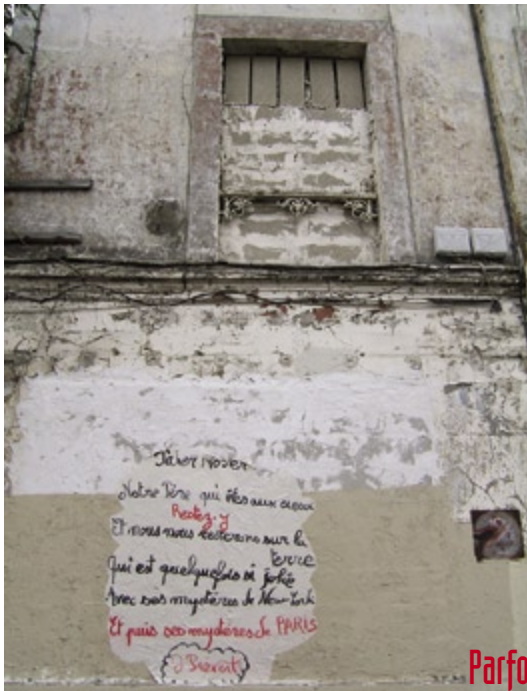 Pater noster
Notre Père qui êtes aux cieux
Restez-y
Et nous nous resterons sur la
terre
Qui est quelquefois si jolie
Avec ses mystères de New-York
Et puis ses mystères de PARIS
J Prévert
Parfo